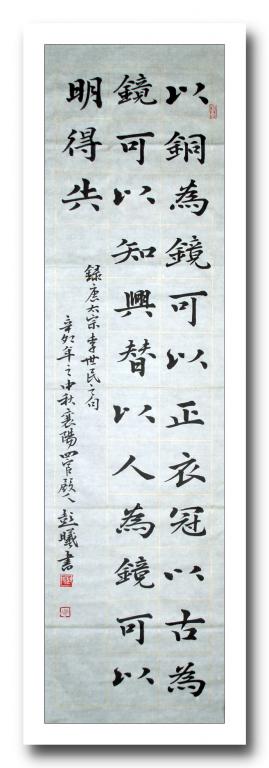 以銅為鏡可以正衣冠以古為
鏡可以知興替以人為鏡可以
明得失
錄唐太宗李世民之句
辛卯年之中秋襄陽四官殿人彭曦書